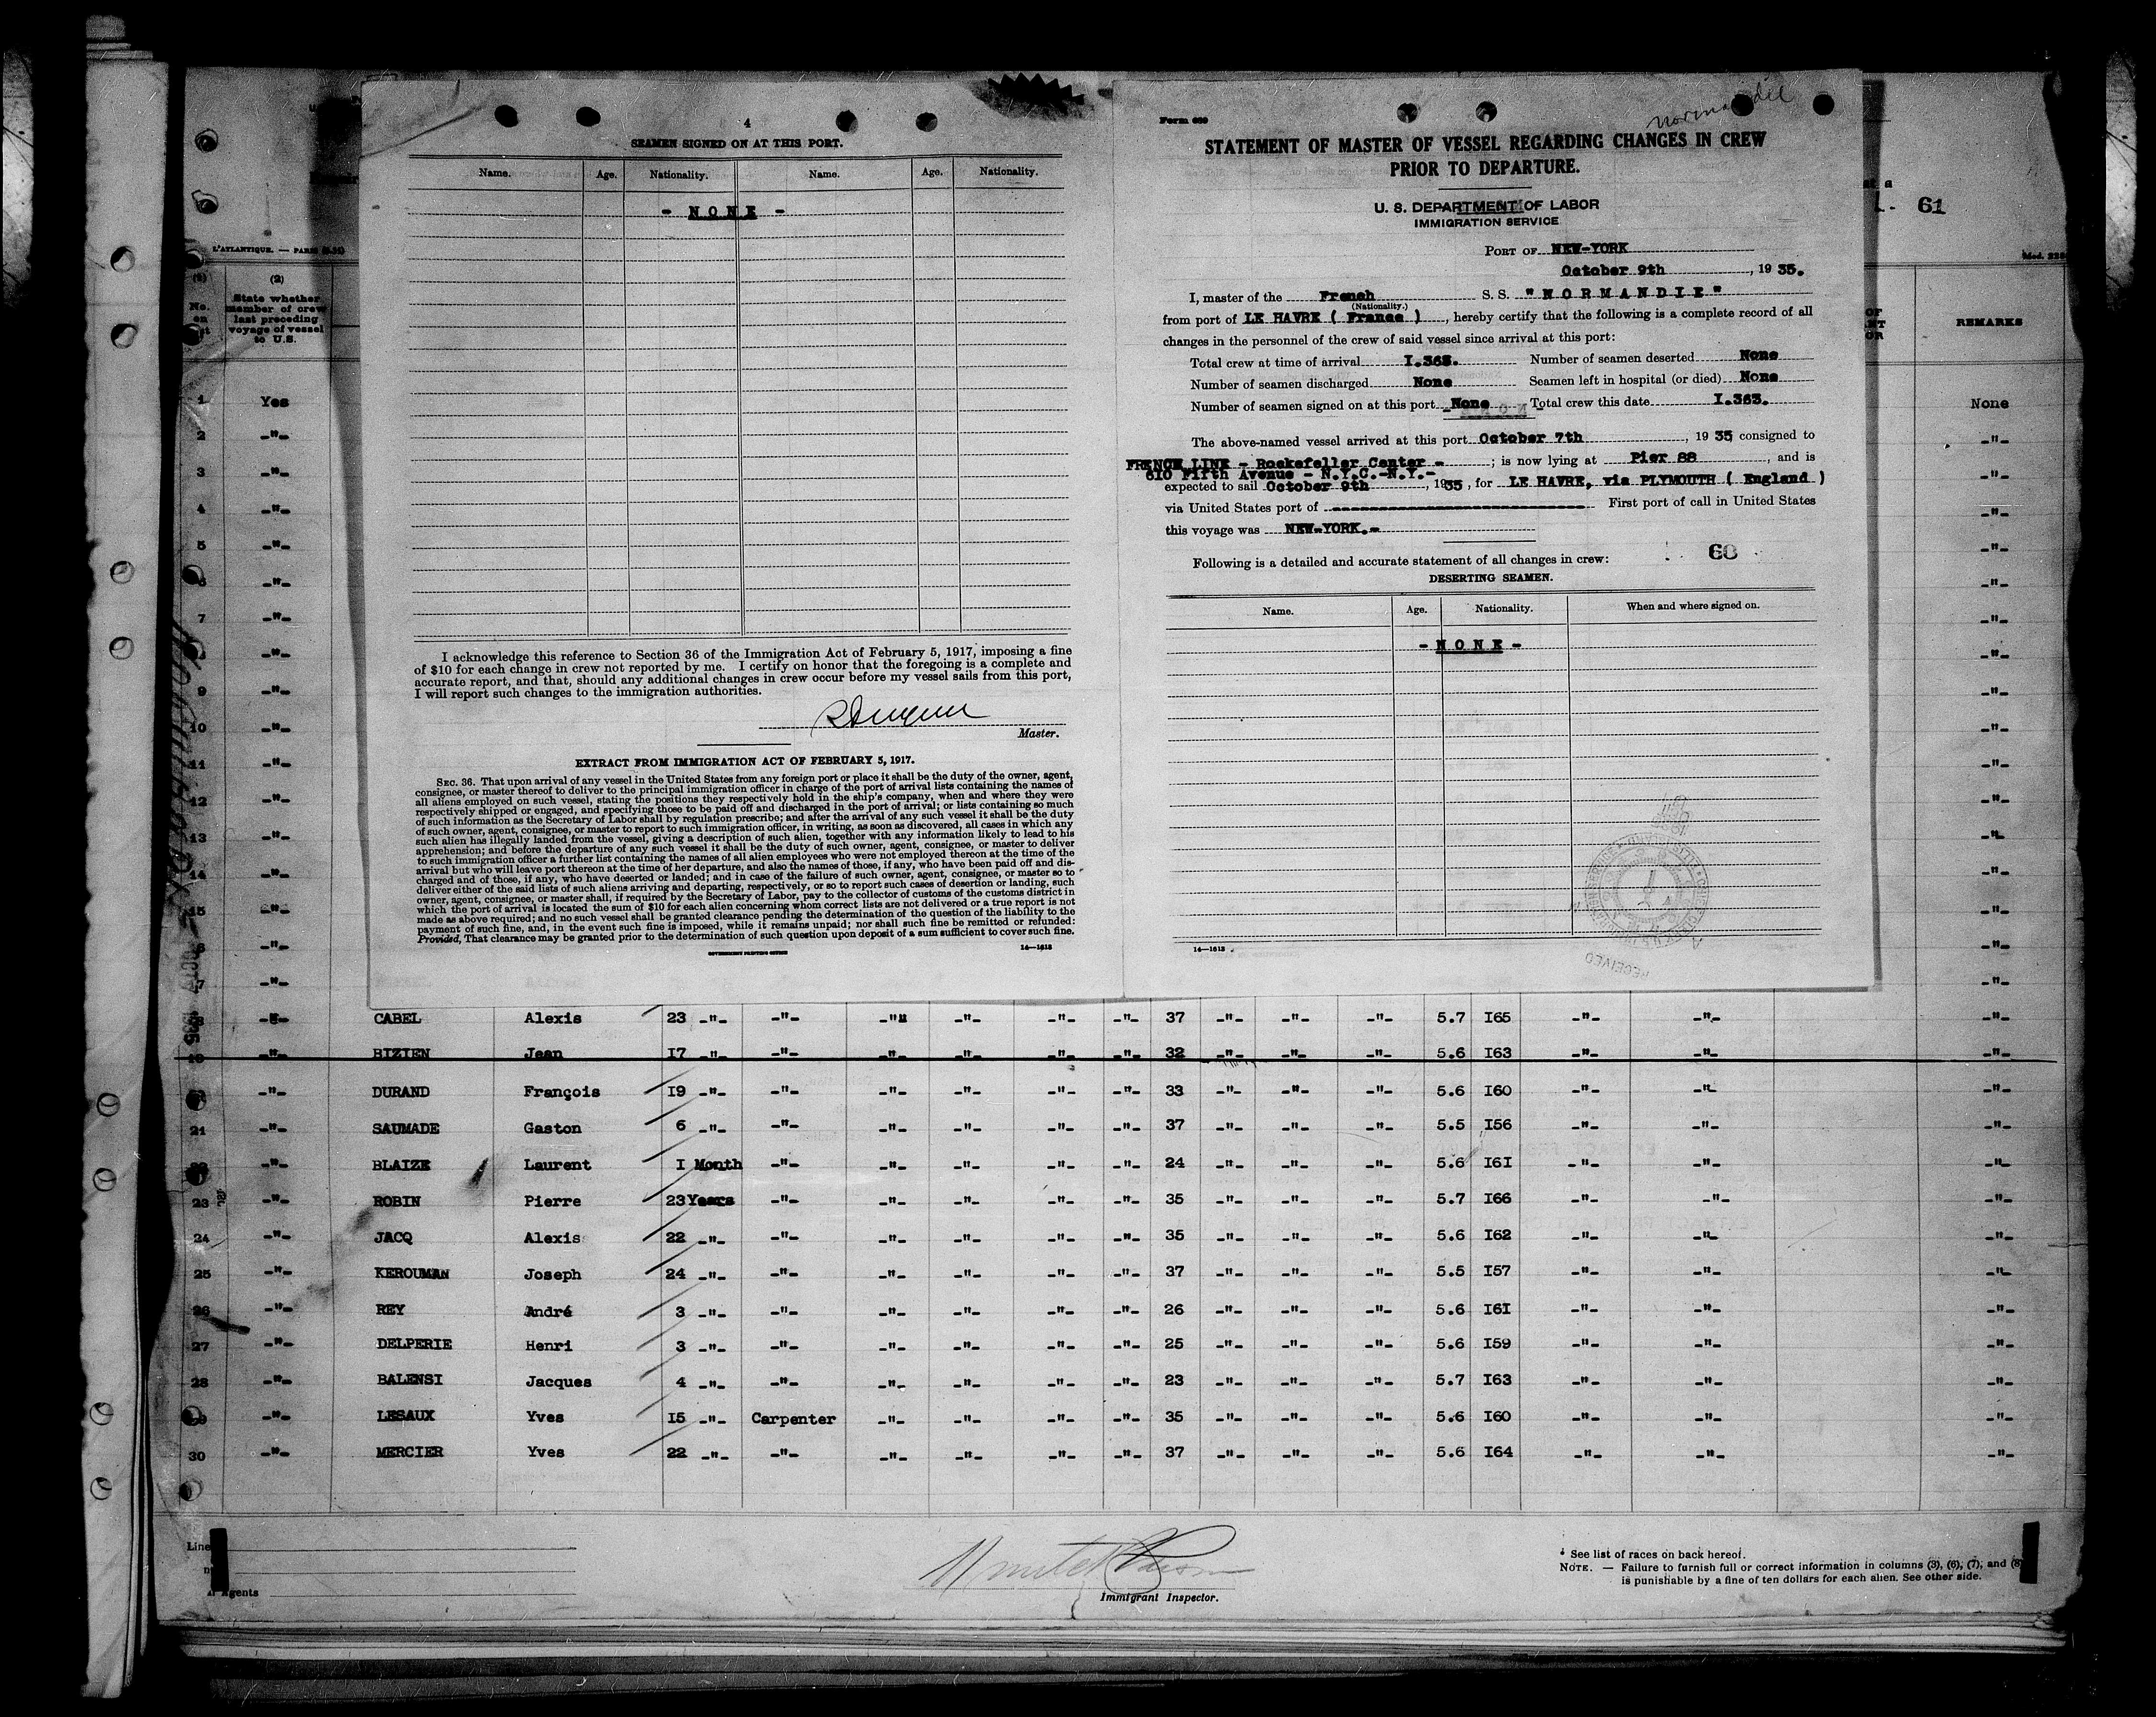 4
SEAMEN SIGNED ON AT THIS PORT.
Name. Age. Nationality. Name. Age. Nationality.
- N O N E -
I acknowledge this reference to Section 36 of the Immigration Act of February 5, 1917, imposing a fine
of $10 for each change in crew not reported by me. I certify on honor that the foregoing is a complete and
accurate report, and that, should any additional changes in crew occur before my vessel sails from this port,
I will report such changes to the immigration authorities.
Master.
EXTRACT FROM IMMIGRATION ACT OF FEBRUARY 5, 1917.
SEC. 36. That upon arrival of any vessel in the United States from any foreign port or place it shall be the duty of the owner, agent,
consignee, or master thereof to deliver to the principal immigration officer in charge of the port of arrival lists containing the names of
all aliens employed on such vessel, stating the positions they respectively hold in the ship's company, when and where they were
respectively shipped or engaged, and specifying those to be paid off and discharged in the port of arrival; or lists containing so much
of such information as the Secretary of Labor shall by regulation prescribe; and after the arrival of any such vessel it shall be the duty
of such owner, agent, consignee, or master to report to such immigration officer, in writing, as soon as discovered, all cases in which any
such alien has illegally landed from the vessel, giving a description of such alien, together with any information likely to lead to his
apprehension; and before the departure of any such vessel it shall be the duty of such owner, agent, consignee, or master to deliver
to such immigration officer a further list containing the names of all alien employees who were not employed thereon at the time of the
arrival but who will leave port thereon at the time of her departure, and also the names of those, if any, who have been paid off and dis-
charged and of those, if any, who have deserted or landed; and in case of the failure of such owner, agent, consignee, or master so to
deliver either of the said lists of such aliens arriving and departing, respectively, or so to report such cases of desertion or landing, such
owner, agent, consignee, or master shall, if required by the Secretary of Labor, pay to the collector of customs of the customs district in
which the port of arrival is located the sum of $10 for each alien concerning whom correct lists are not delivered or a true report is not
made as above required; and no such vessel shall be granted clearance pending the determination of the question of the liability to the
payment of such fine, and, in the event such fine is imposed, while it remains unpaid; nor shall such fine be remitted or refunded:
Provided, That clearance may be granted prior to the determination of such question upon deposit of a sum sufficient to cover such fine.
GOVERNMENT PRINTING OFFICE 14—1613
Form 689
Normandie
STATEMENT OF MASTER OF VESSEL REGARDING CHANGES IN CREW
PRIOR TO DEPARTURE.
U. S. DEPARTMENT OF LABOR
IMMIGRATION SERVICE
PORT OF NEW-YORK
October 9th, 1935.
I, master of the French S. S. "N O R M A N D I E"
(Nationality.)
from port of LE HAVRE ( France ), hereby certify that the following is a complete record of all
changes in the personnel of the crew of said vessel since arrival at this port:
Total crew at time of arrival I.363. Number of seamen deserted None
Number of seamen discharged None Seamen left in hospital (or died) None
Number of seamen signed on at this port None Total crew this date I.363.
The above-named vessel arrived at this port October 7th, 1935 consigned to
FRENCH LINE - Rockefeller Center - ; is now lying at Pier 88, and is
610 Fifth Avenue - N.Y.C.-N.Y.-
expected to sail October 9th, 1935, for LE HAVRE, via PLYMOUTH ( England )
via United States port of ---------- First port of call in United States
this voyage was NEW-YORK.-
60
Following is a detailed and accurate statement of all changes in crew:
DESERTING SEAMEN.
Name. Age. Nationality. When and where signed on.
- N O N E -
RECEIVED
14—1613
61
L'ATLANTIQUE. — PARIS
(2)
State whether
member of crew
last preceding
voyage of vessel
to U.S.
REMARKS
1 Yes None
2 -"- -"-
3 -"- -"-
4 -"- -"-
5 -"- -"-
6 -"- -"-
7 -"- -"-
-"- -"-
9 -"- -"-
10 -"- -"-
11 -"- -"-
12 -"- -"-
13 -"- -"-
14 -"- -"-
15 -"- -"-
-"- -"-
-"- -"-
-"- CABEL Alexis 23 -"- -"- -"- -"- -"- -"- 37 -"- -"- -"- 5.7 I65 -"- -"- -"-
-"- BIZIEN Jean I7 -"- -"- -"- -"- -"- -"- 32 -"- -"- -"- 5.6 I63 -"- -"- -"-
-"- DURAND François I9 -"- -"- -"- -"- -"- -"- 33 -"- -"- -"- 5.6 I60 -"- -"- -"-
21 -"- SAUMADE Gaston 6 -"- -"- -"- -"- -"- -"- 37 -"- -"- -"- 5.5 I56 -"- -"- -"-
-"- BLAIZE Laurent I Month -"- -"- -"- -"- -"- 24 -"- -"- -"- 5.6 I6I -"- -"- -"-
23 -"- ROBIN Pierre 23 Years -"- -"- -"- -"- -"- 35 -"- -"- -"- 5.7 I66 -"- -"- -"-
24 -"- JACQ Alexis 22 -"- -"- -"- -"- -"- -"- 35 -"- -"- -"- 5.6 I62 -"- -"- -"-
25 -"- KEROUMAN Joseph 24 -"- -"- -"- -"- -"- -"- 37 -"- -"- -"- 5.5 I57 -"- -"- -"-
26 -"- REY André 3 -"- -"- -"- -"- -"- -"- 26 -"- -"- -"- 5.6 I6I -"- -"- -"-
27 -"- DELPERIE Henri 3 -"- -"- -"- -"- -"- -"- 25 -"- -"- -"- 5.6 I59 -"- -"- -"-
28 -"- BALENSI Jacques 4 -"- -"- -"- -"- -"- -"- 23 -"- -"- -"- 5.7 I63 -"- -"- -"-
-"- LESAUX Yves I5 -"- Carpenter -"- -"- -"- -"- 35 -"- -"- -"- 5.6 I60 -"- -"- -"-
30 -"- MERCIER Yves 22 -"- -"- -"- -"- -"- -"- 37 -"- -"- -"- 5.6 I64 -"- -"- -"-
Line
Agents
Immigrant Inspector.
* See list of races on back hereof.
NOTE. — Failure to furnish full or correct information in columns (3), (6), (7), and (8)
is punishable by a fine of ten dollars for each alien. See other side.